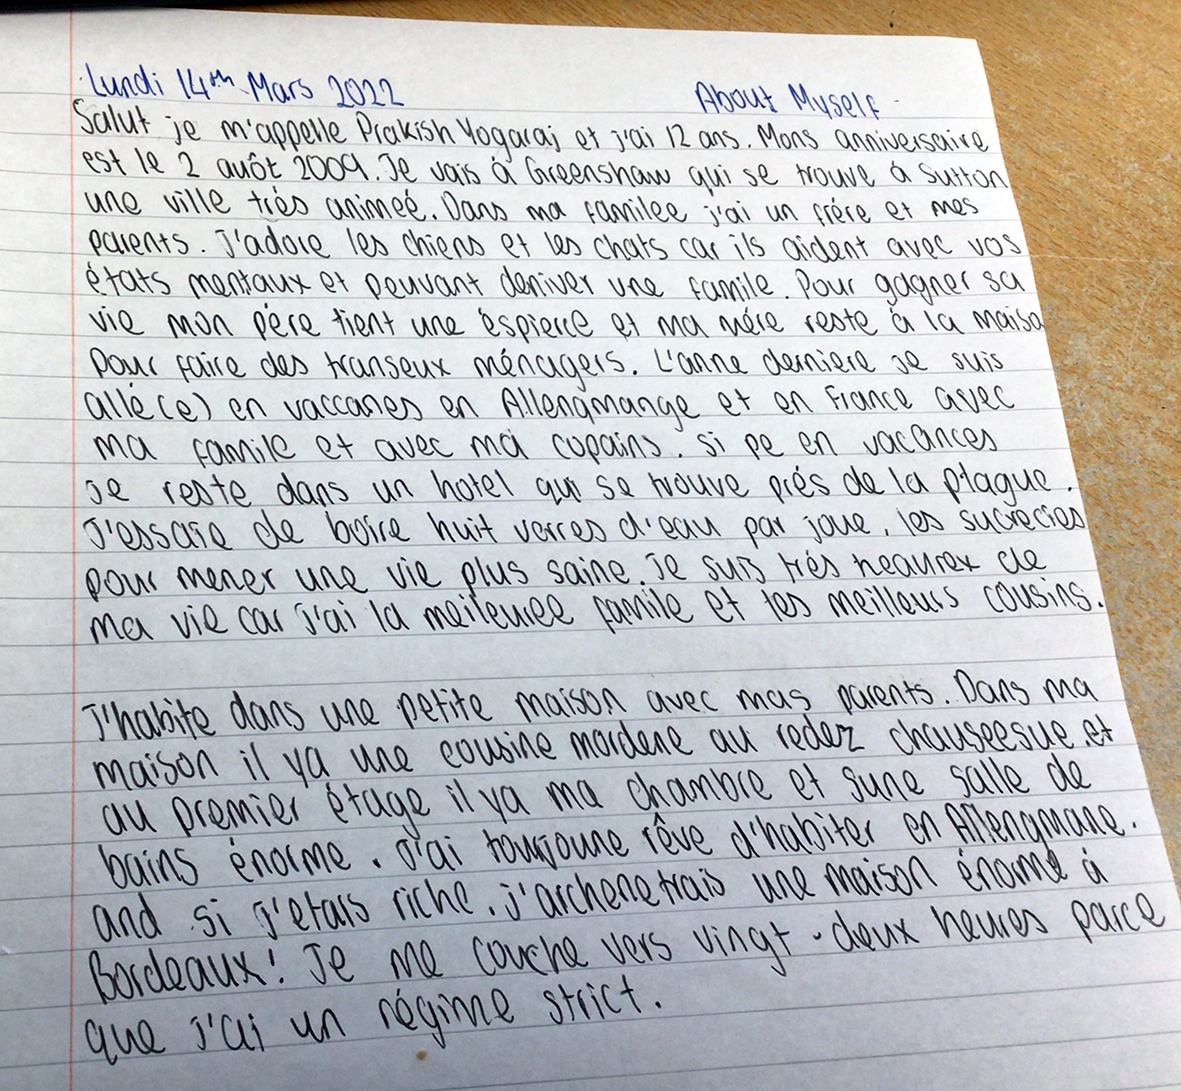 Lundi 14th Mars 2022 About Myself
Salut je m'appelle Prakish Yogaraj et j'ai 12 ans. Mons anniversaire
est le 2 auôt 2009. Je vais à Greenshaw qui se trouve à Sutton
une ville trés animeé. Dans ma familee j'ai un frére et mes
parents. J'adore les chiens et les chats car ils aident avec vos
états mentaux et peuvant deniver une famile. Pour gagner sa
vie mon pére tient une éspierce et ma mére reste à la maiso
pour faire des transeux ménagers. L'anne derniere je suis
allé(e) en vaccanes en Allengmange et en France avec
ma famile et avec ma copains. si pe en vacances
je reste dans un hotel qui se trouve prés de la plague.
J'essaie de boire huit verres d'eau par joue, les sucrecies
pour mener une vie plus saine. Je suis trés heaurex de
ma vie car j'ai la meileuree famile et les meilleurs cousins.
J'habite dans une petite maison avec mas parents. Dans ma
maison il ya une cousine mordene au redez chauseesue et
au premier étage il ya ma chambre et sune salle de
bains énorme. J'ai toujoune rêve d'habiter en Allengmane.
and si j'etais riche, j'archenetrais une maison énorme à
Bordeaux! Je me couche vers vingt-deux heures parce
que j'ai un régime strict.